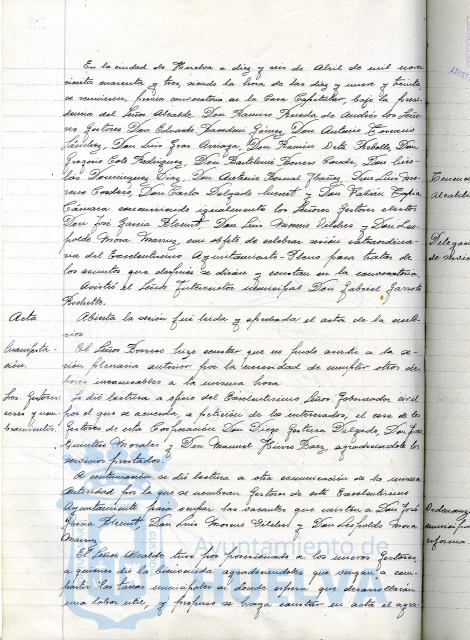 En la ciudad de Huelva a diez y seis de Abril de mil nove-
cientos cuarenta y tres, siendo la hora de las diez y nueve y treinta,
se reunieron, previa convocatoria en la Casa Capitular, bajo la presi-
dencia del Señor Alcalde Don Ramiro Rueda de Andrés los Seño-
res Gestores Don Eduardo Gómez, Don Antonio Toscano
Sánchez, Don Luis Grau Arriaga, Don Ramón Rebollo, Don
Gregorio Rodríguez, Don Bartolomé Borrero Conde, Don
Domínguez Díaz, Don Antonio Bernal Ybáñez, Don Luis Mo-
reno Cordero, Don Carlos Delgado y Don Fabián Tapia
Cámara concurriendo igualmente los Señores Gestores electos
Don José García Don Luis Moreno y Don Leo-
poldo Mora con objeto de celebrar sesión extraordina-
ria del Excelentísimo Ayuntamiento Pleno para tratar de
los asuntos que después se dirán y constan en la convocatoria.
Asistió el Señor Interventor municipal Don Gabriel Garrote
Acta
Abierta la sesión fué leida y aprobada el acta de la ante-
rior.
Manifesta-
ción.
El Señor Borrero hizo constar que no pudo asistir a la se-
sión plenaria anterior por la necesidad de cumplir otros de-
beres inexcusables a la misma hora.
Los Gestores
ceses y nom-
bramientos.
Se dió lectura a oficio del Excelentísimo Señor Gobernador civil
por el que se acuerda, a petición de los interesados, el cese de los
Gestores de esta Corporación Don Diego Delgado, Don
Morales y Don Manuel agradeciéndoles los
servicios prestados.
A continuación se dió lectura a otra comunicación de la misma
autoridad por la que se nombran Gestores de este Excelentísimo
Ayuntamiento para ocupar las vacantes que existen a Don José
García Don Luis Moreno y Don Leopoldo Mora
El Señor Alcalde tuvo por posesionados a los nuevos Gestores,
a quienes dió la bienvenida agradeciéndoles que vengan a com-
partir las tareas municipales en donde espera que desarrollarán
una labor útil, y propuso se haga constar en acta el agra-
Ayuntamiento de
HUELVA
Alcalde
Ordenanza
municipal
reforma.